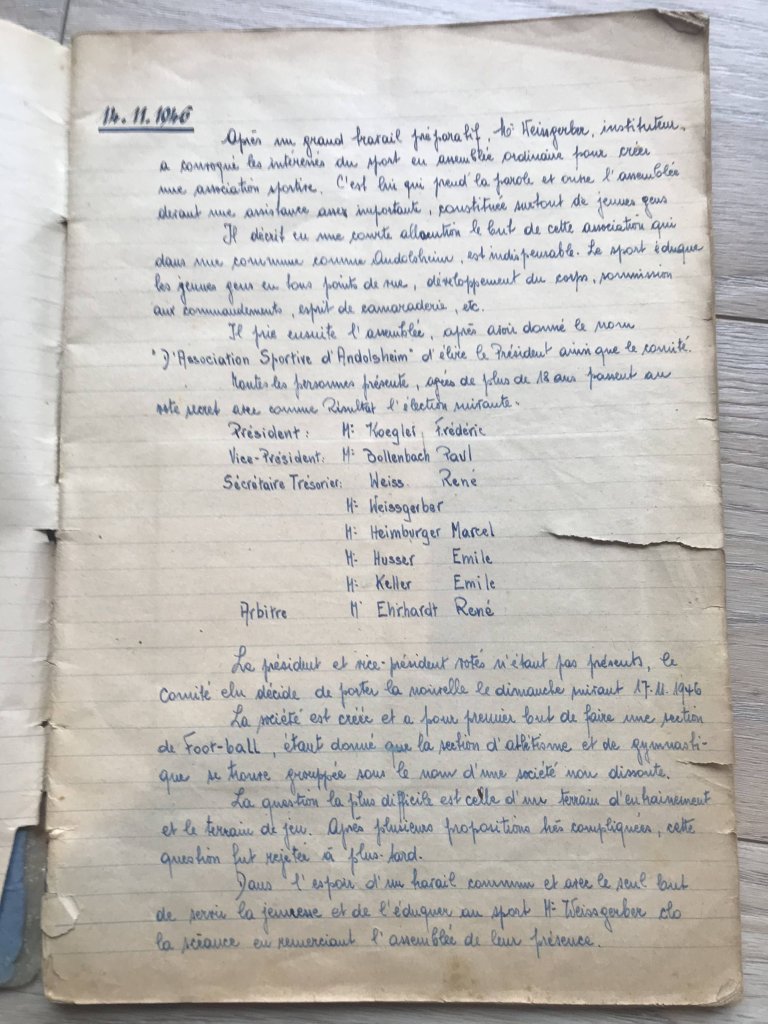 14.11.1946
Après un grand travail préparatif, Mr Weissgerber, instituteur,
a convoqué les intéressés du sport en assemblée ordinaire pour créer
une association sportive. C'est lui qui prend la parole et ouvre l'assemblée
devant une assistance assez importante, constituée surtout de jeunes gens
Il décrit en une courte allocution le but de cette association qui
dans une commune comme Andolsheim, est indispensable. Le sport éduque
les jeunes gens en tous points de vue, développement du corps, soummission
aux commandements, esprit de camaraderie, etc.
Il prie ensuite l'assemblée, après avoir donné le nom
"D'Association Sportive d'Andolsheim" d'élire le Président ainsi que le comité.
Toutes les personnes présente, agées de plus de 18 ans passent au
vote secret avec comme Résultat l'élection suivante.
Président: Mr Koegler Frédéric
Vice-Président: Mr Bollenbach Paul
Sécrétaire Trésorier: Weiss René
Mr Weissgerber
Mr Heimburger Marcel
Mr Husser Emile
Mr Keller Emile
Arbitre Mr Ehrhardt René
Le président et vice-président votés n'étant pas présents, le
Comité élu décide de porter la nouvelle le dimanche suivant 17.11.1946
La société est créée et a pour premier but de faire une section
de Foot-ball, étant donné que la section d'athlétisme et de gymnasti-
que se trouve grouppée sous le nom d'une société non dissoute.
La question la plus difficile est celle d'un terrain d'entrainement
et le terrain de jeu. Après plusieurs propositions très compliquées, cette
question fut rejetée à plus-tard.
Dans l'espoir d'un travail commun et avec le seul but
de servir la jeunesse et de l'éduquer au sport Mr Weissgerber clo
la scéance en remerciant l'assemblée de leur présence.